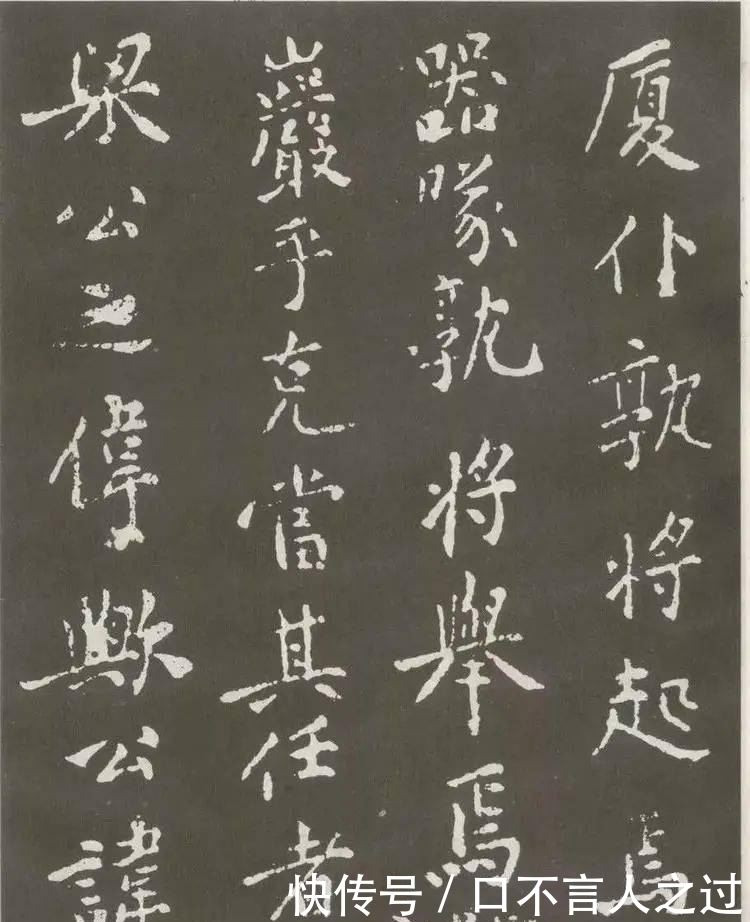 厦仆孰将起焉
器隊孰将舉焉
巖乎克當其任者
梁公之偉歟公諱
快传号 / 口不言人之过